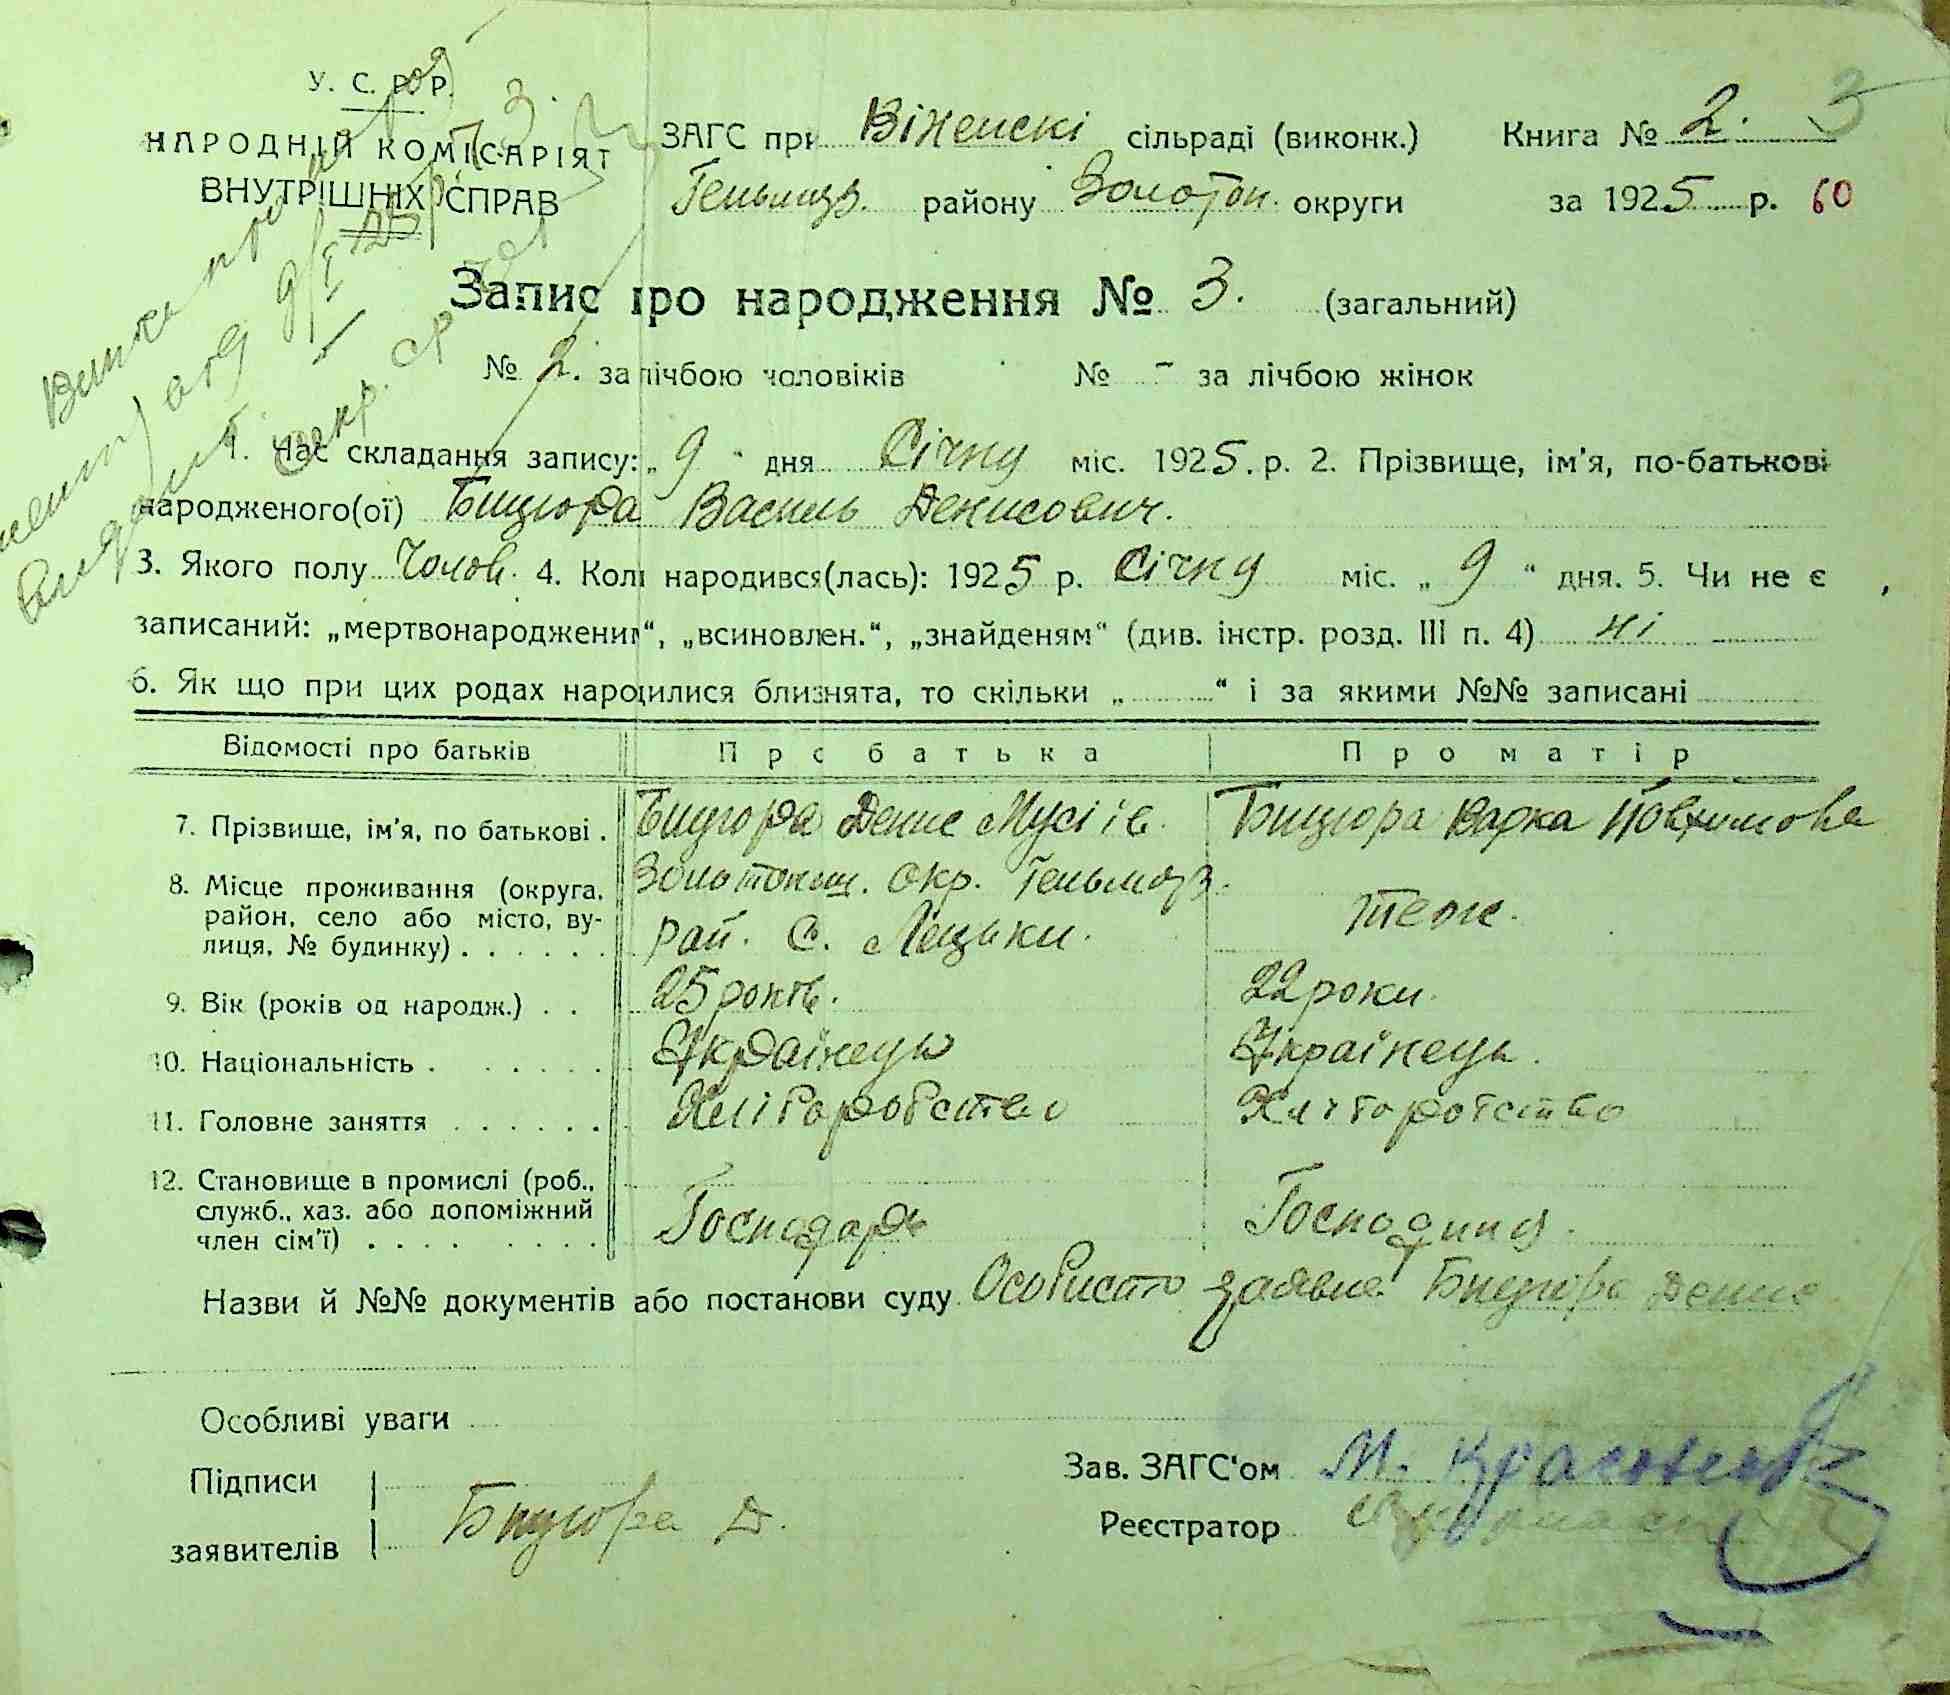 У. С. Р. Р.
НАРОДНІЙ КОМІСАРІЯТ
ВНУТРІШНІХ СПРАВ
ЗАГС при Віненскі сільраді (виконк.) Книга № 2. 3
Гельмяз. району Золотон. округи за 1925 р. 60
Запис про народження № 3. (загальний)
№ 2. за лічбою чоловіків № - за лічбою жінок
1. Час складання запису: „ 9 " дня Січня міс. 1925. р. 2. Прізвище, ім'я, по-батькові
народженого(ої) Бицюра Василь Денисович.
3. Якого полу Чолов. 4. Коли народився(лась): 1925 р. Січня міс. „ 9 " дня. 5. Чи не є
записаний: „мертвонародженим", „всиновлен.", „знайденям" (див. інстр. розд. III п. 4) ні
6. Як що при цих родах народилися близнята, то скільки „ " і за якими №№ записані
Відомості про батьків Про батька Про матір
7. Прізвище, ім'я, по батькові . Бицюра Денис Мусіїв Бицюра Варка Йовхимова
8. Місце проживання (округа, район, село або місто, вулиця, № будинку) . . . . . . Золотоніш. окр. Гельмяз. рай. С. Лецьки. теж.
9. Вік (років од народж.) . . 25 років. 22 роки.
10. Національність . . . . . . Українець Українець.
11. Головне заняття . . . . . . Хліборобство Хліборобство
12. Становище в промислі (роб., служб., хаз. або допоміжний член сім'ї) . . . . . . . . Господарь Господиня.
Назви й №№ документів або постанови суду Особисто заявив Бицюра Денис
Особливі уваги
Підписи
заявителів Бицюра Д.
Зав. ЗАГС'ом М.
Реєстратор